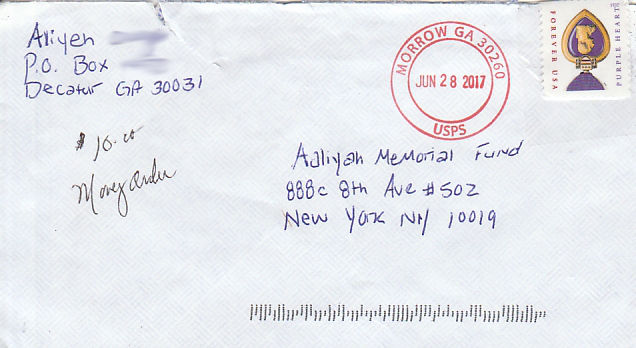 Aliyeh
P.O. Box
Decatur GA 30031
MORROW GA 30260
JUN 28 2017
USPS
FOREVER USA
PURPLE HEART
$10.00
Money order
Aaliyah Memorial Fund
888c 8th Ave #502
New York NY 10019